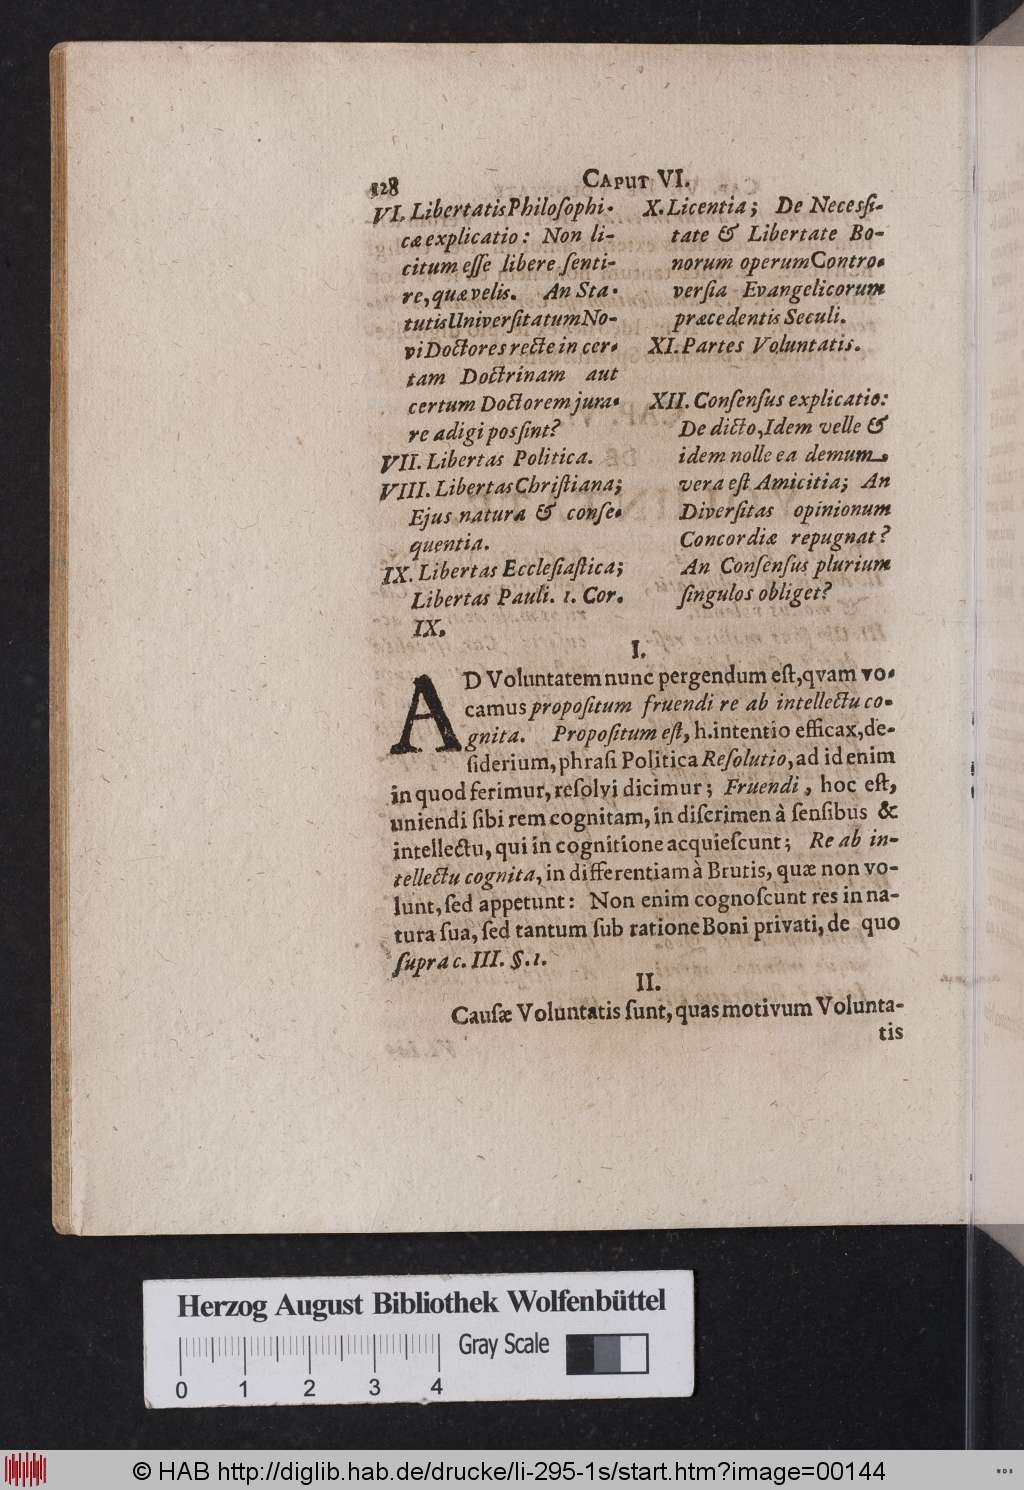 128 CAPUT VI.
VI. Libertatis Philoſophi-
cæ explicatio: Non li-
citum eſſe libere ſenti-
re, quæ velis. An Sta-
tutis Univerſitatum No-
vi Doctores recte in cer-
tam Doctrinam aut
certum Doctorem jura-
re adigi posſint?
VII. Libertas Politica.
VIII. Libertas Chriſtiana;
Ejus natura & conſe-
quentia.
IX. Libertas Eccleſiaſtica;
Libertas Pauli. 1. Cor.
IX.
X. Licentia; De Necesſi-
tate & Libertate Bo-
norum operum Contro-
verſia Evangelicorum
præcedentis Seculi.
XI. Partes Voluntatis.
XII. Conſenſus explicatio:
De dicto, Idem velle &
idem nolle ea demum
vera eſt Amicitia; An
Diverſitas opinionum
Concordiæ repugnat?
An Conſenſus plurium
ſingulos obliget?
I.
AD Voluntatem nunc pergendum eſt, qvam vo-
camus propoſitum fruendi re ab intellectu co-
gnita. Propoſitum eſt, h. intentio efficax, de-
ſiderium, phraſi Politica Reſolutio, ad id enim
in quod ferimur, reſolvi dicimur; Fruendi, hoc eſt,
uniendi ſibi rem cognitam, in diſcrimen à ſenſibus &
intellectu, qui in cognitione acquieſcunt; Re ab in-
tellectu cognita, in differentiam à Brutis, quæ non vo-
lunt, ſed appetunt: Non enim cognoſcunt res in na-
tura ſua, ſed tantum ſub ratione Boni privati, de quo
ſupra c. III. §. 1.
II.
Cauſæ Voluntatis ſunt, quas motivum Volunta-
tis
Herzog August Bibliothek Wolfenbüttel
Gray Scale
0 1 2 3 4
© HAB http://diglib.hab.de/drucke/li-295-1s/start.htm?image=00144